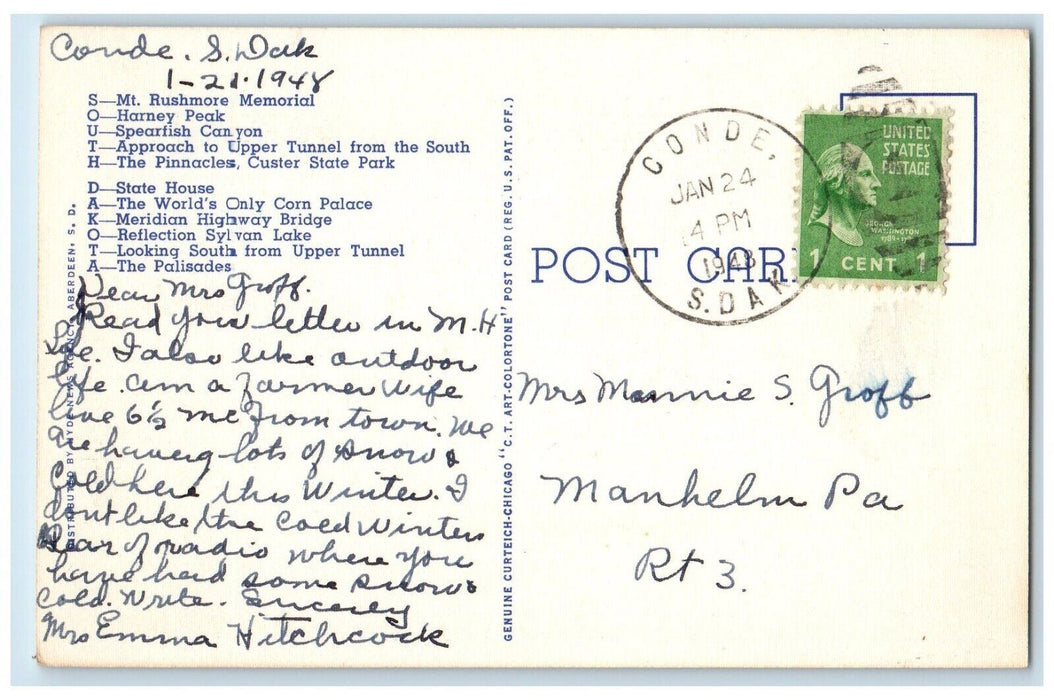 Conde. S. Dak
1-21-1948
S—Mt. Rushmore Memorial
O—Harney Peak
U—Spearfish Canyon
T—Approach to Upper Tunnel from the South
H—The Pinnacles, Custer State Park
D—State House
A—The World's Only Corn Palace
K—Meridian Highway Bridge
O—Reflection Sylvan Lake
T—Looking South from Upper Tunnel
A—The Palisades
Dear Mrs Groff.
Read your letter in M.H
I also like outdoor
life. am a farmer wife
live 6½ mi from town. We
are having lots of snow &
Cold here this Winter. I
dont like the Cold Winters
Hear of radio where you
have had some snow &
Cold. Write. Sincerely
Mrs Emma Hitchcock
ABERDEEN, S. D.
GENUINE CURTEICH-CHICAGO "C.T. ART-COLORTONE" POST CARD (REG. U.S. PAT. OFF.)
CONDE,
JAN 24
4 PM
1948
S. DAK
UNITED
STATES
POSTAGE
GEORGE
WASHINGTON
1 CENT 1
POST CARD
Mrs Mannie S. Groff
Manheim Pa
Rt 3.